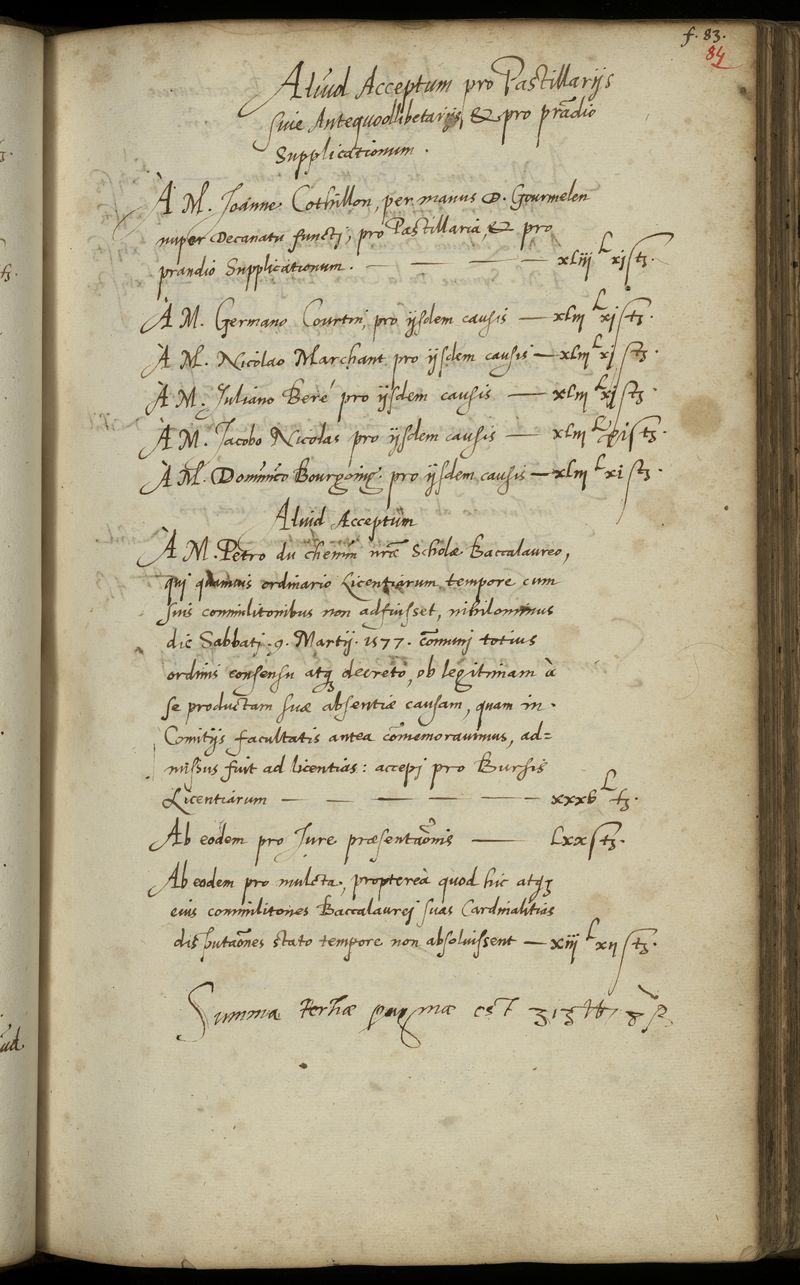 f. 83.
84
Aliud Acceptum pro Pastillarijs
siue Antequodlibetarijs, & pro prãdio
Supplicationum.
A M. Joanne Cothillon, per manus D. Gourmelen
nuper Decanatu functj, pro Pastillaria, & pro
prandio Supplicationum. — xliij L xj s tz.
A M. Germano Courtin, pro ijsdem causis — xliij L xj s tz.
A M. Nicolao Marchant pro ijsdem causis — xliij L xj s tz.
A M. Juliano Beré pro ijsdem causis — xliij L xj s tz.
A M. Jacobo Nicolas pro ijsdem causis — xliij L xj s tz.
A M. Dominico Bourgoing pro ijsdem causis — xliij L xi s tz.
Aluid Acceptum
A M. Petro du chemin nrãe Scholæ Baccalaureo,
quj quamuis ordinario Licentiarum tempore cum
suis commilitonibus non adfuisset, nihilominus
die Sabbatj. 9. Martij. 1577. cõmunj totius
ordinis consensu atq; decreto, ob legitimam à
se productam suæ absentiæ causam, quam in
Comitijs facultatis antea cõmemorauimus, ad=
missus fuit ad licentias: accepj pro Bursis
Licentiarum — xxxv L tz.
Ab eodem pro Jure præsentaõnis — Lxx s tz.
Ab eodem pro mulcta, proptereà quod hic atq;
eius commilitones Baccalaurej suas Cardinalitias
disputaõnes stato tempore non absoluissent — xiij L xij s tz.
Summa tertiæ paginæ est 313 tt
ud